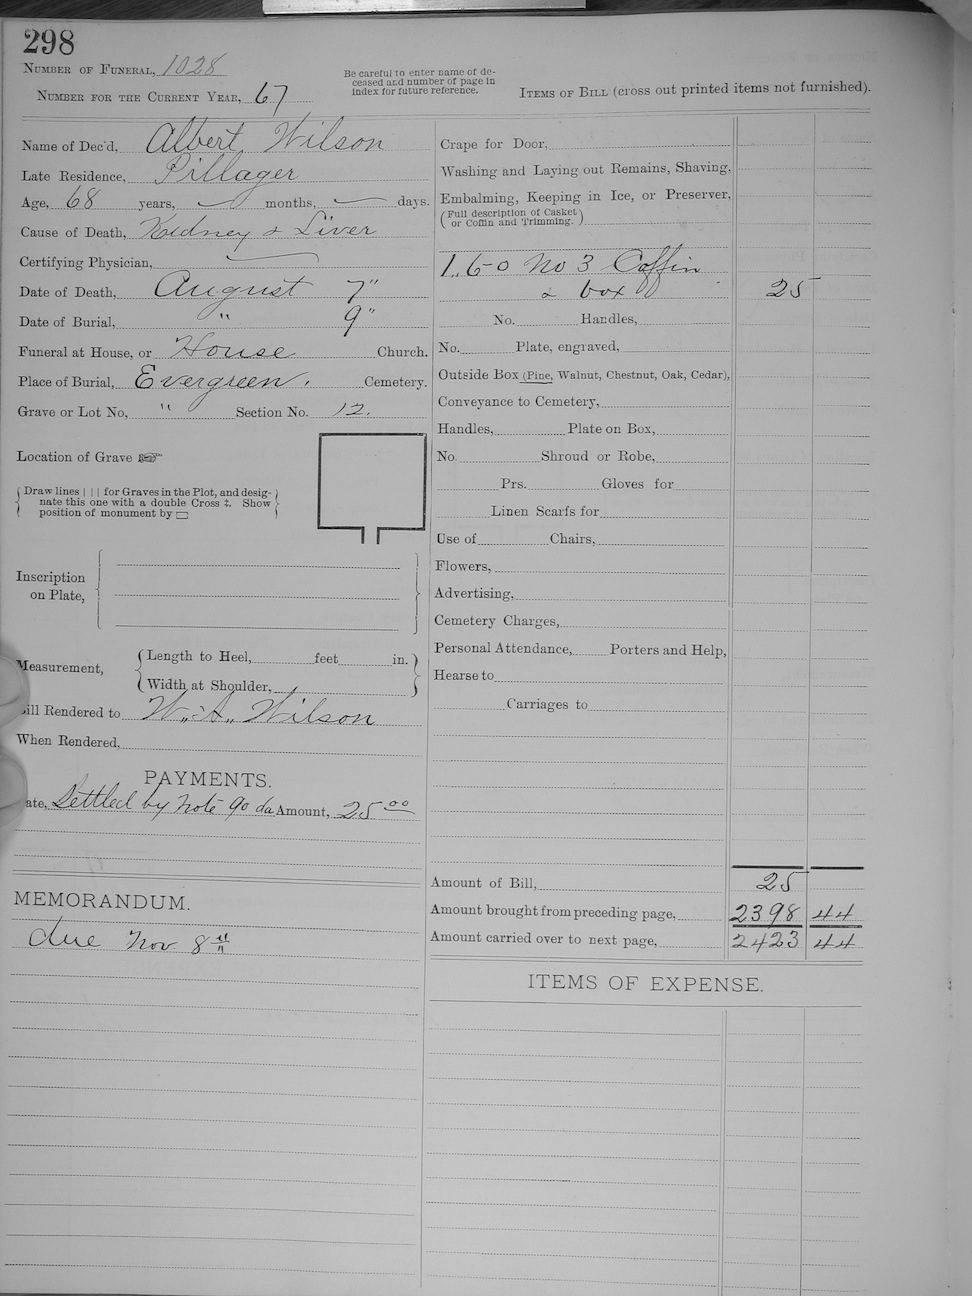 298
NUMBER OF FUNERAL, 1028
NUMBER FOR THE CURRENT YEAR, 67
Be careful to enter name of de-
ceased and number of page in
index for future reference.
ITEMS OF BILL (cross out printed items not furnished).
Name of Dec'd, Albert Wilson
Late Residence, Pillager
Age, 68 years, months, days.
Cause of Death, Kidney & Liver
Certifying Physician,
Date of Death, August 7"
Date of Burial, " 9"
Funeral at House, or House Church.
Place of Burial, Evergreen. Cemetery.
Grave or Lot No, " Section No. 12.
Location of Grave ☞
Draw lines | | | for Graves in the Plot, and desig-
nate this one with a double Cross ‡. Show
position of monument by ▭
Inscription
on Plate,
Measurement,
Length to Heel, feet in.
Width at Shoulder,
Bill Rendered to W. A. Wilson
When Rendered,
PAYMENTS.
Date, Settled by note 90 da Amount, 25 00
MEMORANDUM.
due Nov 8th
Crape for Door,
Washing and Laying out Remains, Shaving,
Embalming, Keeping in Ice, or Preserver,
(Full description of Casket
or Coffin and Trimming.)
1. 6-0 No 3 Coffin
& box 25
No. Handles,
No. Plate, engraved,
Outside Box (Pine, Walnut, Chestnut, Oak, Cedar),
Conveyance to Cemetery,
Handles, Plate on Box,
No. Shroud or Robe,
Prs. Gloves for
Linen Scarfs for
Use of Chairs,
Flowers,
Advertising,
Cemetery Charges,
Personal Attendance, Porters and Help,
Hearse to
Carriages to
Amount of Bill, 25
Amount brought from preceding page, 2398 44
Amount carried over to next page, 2423 44
ITEMS OF EXPENSE.